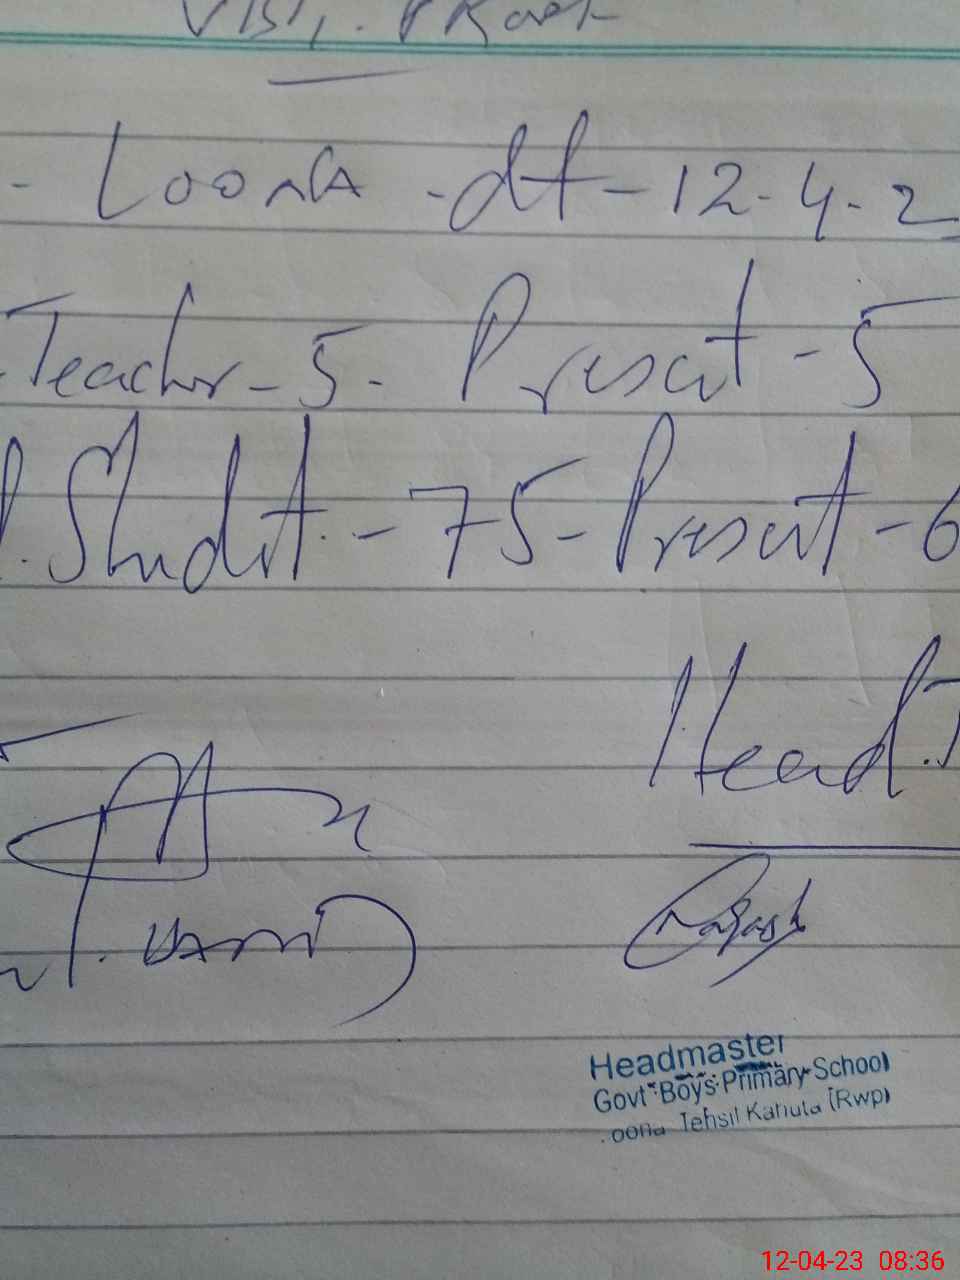 - Loona - dt - 12-4-2
Teacher - 5 - Present - 5
Studt. - 75 - Present - 6
Head.T
Headmaster
Govt Boys Primary School
oona Tehsil Kahuta (Rwp)
12-04-23 08:36